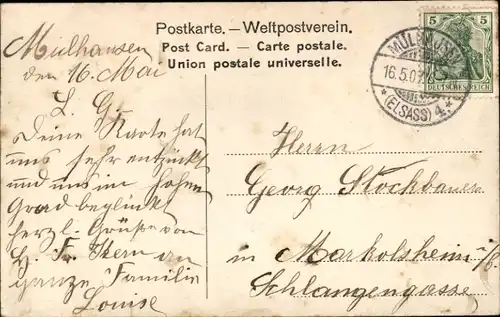 Postkarte. — Weltpostverein.
Post Card. — Carte postale.
Union postale universelle.
5 5
DEUTSCHES REICH
MÜLHAUSEN
16.5.07
*(ELSASS) 4*
Mülhausen
den 16. Mai
L. G.
Deine Karte hat
uns sehr entzückt
und uns im hohen
Grad beglückt
herzl. Grüße von
Fr. Kern an
ganze Familie
Louise
Herrn
Georg Stockbauer
in Markolsheim i/E
Schlangengasse